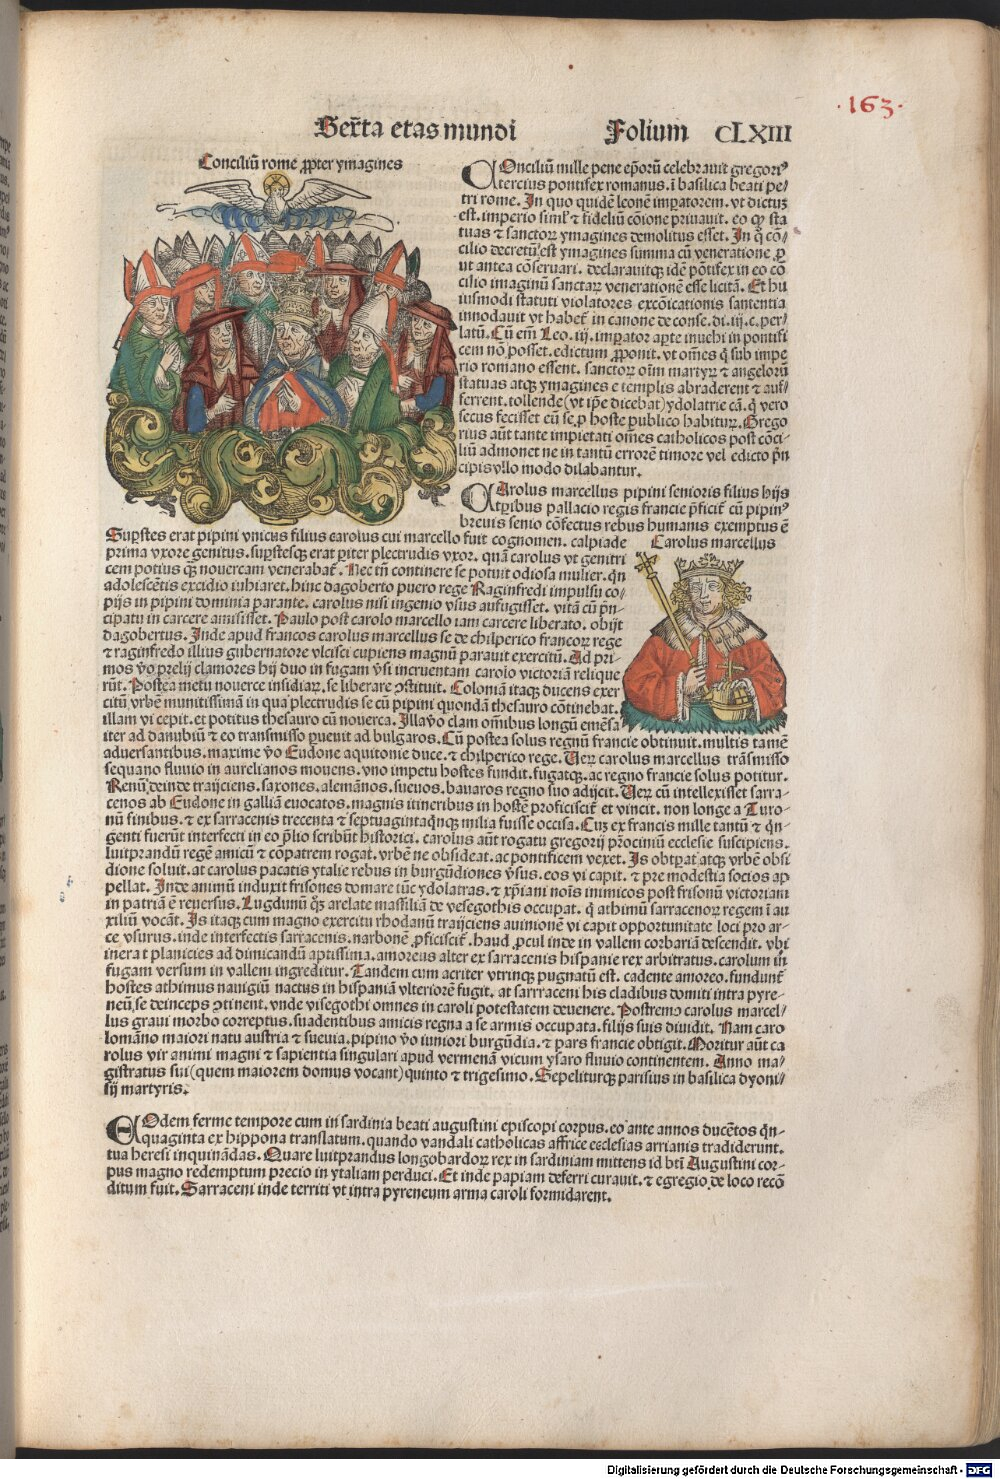 ·163·
Sexta etas mundi Folium CLXIII
Conciliū rome ꝓpter ymagines
COnciliū mille pene ep̄orū celebrauit gregoriꝰ
tercius pontifex romanus. ī basilica beati pe/
tri rome. In quo quidē leonē impatorem. vt dictuz
est. imperio simul ⁊ fideliū cōione priuauit. eo qꝫ sta
tuas ⁊ sanctorꝝ ymagines demolitus esset. In q̄ cō/
cilio decretū est ymagines summa cū veneratione ꝓ
ut antea cōseruari. declarauitqꝫ idē pōtifex in eo cō
cilio imaginū sanctarꝝ venerationē esse licitā. Et hu
iusmodi statuti violatores excōicationis santentia
innodauit vt habet̄ in canone de conse. di. iij. c. per/
latū. Cū em̄ Leo. iij. impator aꝑte inuehi in pontifi
cem nō posset. edictum ꝓponit. vt om̄es q̄ sub impe
rio romano essent. sanctorꝝ oīm martyrꝝ ⁊ angelorū
statuas atqꝫ ymagines e templis abraderent ⁊ auf/
ferrent. tollende (vt ip̄e dicebat) ydolatrie cā. q̄ vero
secus fecisset eū se ꝓ hoste publico habiturꝝ. Grego
rius aūt tante impietati om̄es catholicos post cōci-
liū admonet ne in tantū errorē timore vel edicto p̄n
cipis vllo modo dilabantur.
CArolus marcellus pipini senioris filius hijs
tp̄ibus pallacio regis francie p̄ficit̄ cū pipinꝰ
breuis senio cōfectus rebus humanis exemptus ē
Suꝑstes erat pipini vnicus filius carolus cui marcello fuit cognomen. calpiade
Carolus marcellus
prima vxore genitus. suꝑstesqꝫ erat ꝑiter plectrudis vxor. quā carolus vt genitri
cem potius qꝫ nouercam venerabat̄. Nec tn̄ continere se potuit odiosa mulier. q̄n
adolescētis excidio iuhiaret. hinc dagoberto puero rege Raginfredi impulsu co/
pijs in pipini dominia parante. carolus nisi ingenio vsus aufugisset. vitā cū p̄n-
cipatu in carcere amisisset. Paulo post carolo marcello iam carcere liberato. obijt
dagobertus. Inde apud francos carolus marcellus se de chilperico francorꝝ rege
⁊ raginfredo illius gubernatore vlcisci cupiens magnū parauit exercitū. Ad pri-
mos v̄o prelij clamores hij duo in fugam v̄si incruentam carolo victoriā relique
rūt. Postea metu nouerce insidiarꝝ. se liberare ꝯstituit. Coloniā itaqꝫ ducens exer
citū. vrbē munitissimā in qua plectrudis se cū pipini quondā thesauro cōtinebat.
illam vi cepit. et potitus thesauro cū nouerca. Illa v̄o clam om̄ibus longū emēsa
iter ad danubiū ⁊ eo transmisso ꝑuenit ad bulgaros. Cū postea solus regnū francie obtinuit. multis tamē
aduersantibus. maxime v̄o Eudone aquitonie duce. ⁊ chilperico rege. Verꝝ carolus marcellus trāsmisso
sequano fluuio in aurelianos mouens. vno impetu hostes fundit. fugatqꝫ. ac regno francie solus potitur.
Renū deinde traijciens. saxones. alemānos. sueuos. bauaros regno suo adijcit. Verꝝ cū intellexisset sarra-
cenos ab Eudone in galliā euocatos. magnis itineribus in hostē proficiscit̄ et vincit. non longe a Turo-
nū finibus. ⁊ ex sarracenis trecenta ⁊ septuagintaqn̄qꝫ milia fuisse occisa. Cuz ex francis mille tantū ⁊ q̄n-
genti fuerūt interfecti in eo p̄lio scribūt historici. carolus aūt rogatu gregorij p̄rociniū ecclesie suscipiens.
luitprandū regē amicū ⁊ cōpatrem rogat. vrbē ne obsideat. ac pontificem vexet. Is obtꝑat atqꝫ vrbē obsi
dione soluit. at carolus pacatis ytalie rebus in burgūdiones v̄sus. eos vi capit. ⁊ pre modestia socios ap
pellat. Inde animū induxit frisones domare tūc ydolatras. ⁊ xp̄iani noīs inimicos post frisonū victoriam
in patriā ē reuersus. Lugdunū qꝫs arelate massiliā de vesegothis occupat. q̄ athimū sarracenorꝝ regem ī au
xiliū vocāt. Is itaqꝫ cum magno exercitu rhodanū traijciens auinionē vi capit opportunitate loci pro ar-
ce vsurus. inde interfectis sarracenis. narbonē ꝓficiscit̄. haud ꝓcul inde in vallem corbariā descendit. vbi
inerat planicies ad dimicandū aptissima. amoreus alter ex sarracenis hispanie rex arbitratus. carolum in
fugam versum in vallem ingreditur. Tandem cum acriter vtrinqꝫ pugnatū est. cadente amoreo. fundunt̄
hostes athimus nauigiū nactus in hispaniā vlteriorē fugit. at sarrraceni his cladibus domiti intra pyre-
neū se deinceps ꝯtinent. vnde visegothi omnes in caroli potestatem deuenere. Postremo carolus marcel/
lus graui morbo correptus. suadentibus amicis regna a se armis occupata. filijs suis diuidit. Nam caro
lomāno maiori natu austria ⁊ sueuia. pipino v̄o iuniori burgūdia. ⁊ pars francie obtigit. Moritur aūt ca
rolus vir animi magni ⁊ sapientia singulari apud vermenā vicum ysaro fluuio continentem. Anno ma-
gistratus sui (quem maiorem domus vocant) quinto ⁊ trigesimo. Sepeliturqꝫ parisius in basilica dyoni-
sij martyris.
EOdem ferme tempore cum in sardinia beati augustini episcopi corpus. eo ante annos ducētos q̄n-
quaginta ex hippona translatum. quando vandali catholicas affrice ecclesias arrianis tradiderunt.
tua heresi inquinādas. Quare luitprandus longobardorꝝ rex in sardiniam mittens id bt̄i Augustini cor-
pus magno redemptum precio in ytaliam perduci. Et inde papiam deferri curauit. ⁊ egregio de loco recō
ditum fuit. Sarraceni inde territi vt intra pyreneum arma caroli formidarent.
Digitalisierung gefördert durch die Deutsche Forschungsgemeinschaft - DFG